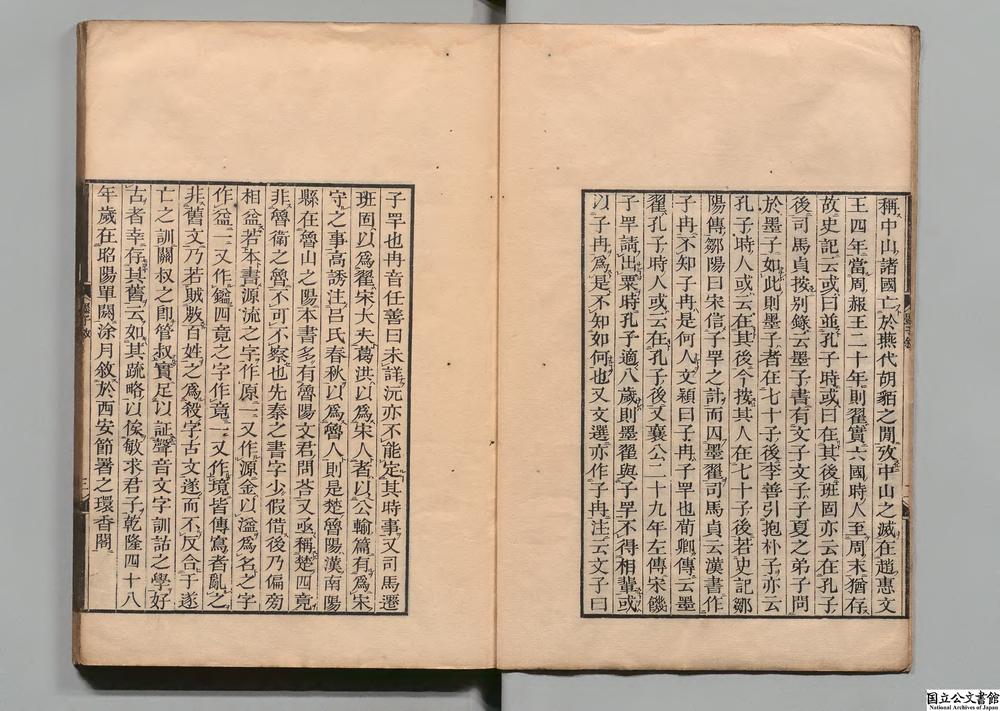 稱中山諸國亡於燕代胡貊之閒攷中山之滅在趙惠文
王四年當周赧王二十年則翟實六國時人至周末猶存
故史記云或曰並孔子時或曰在其後班固亦云在孔子
後司馬貞按别錄云墨子書有文子文子子夏之弟子問
於墨子如此則墨子者在七十子後李善引抱朴子亦云
孔子時人或云在其後今按其人在七十子後若史記鄒
陽傳鄒陽曰宋信子罕之計而囚墨翟司馬貞云漢書作
子冉不知子冉是何人文穎曰子冉子罕也荀卿傳云墨
翟孔子時人或云在孔子後又襄公二十九年左傳宋饑
子罕請出粟時孔子適八歲則墨翟與子罕不得相輩或
以子冉爲是不知如何也又文選亦作子冉注云文子曰
子罕也冉音任善曰未詳沅亦不能定其時事又司馬遷
班固以爲翟宋大夫葛洪以爲宋人者以公輸篇有爲宋
守之事高誘注呂氏春秋以爲魯人則是楚魯陽漢南陽
縣在魯山之陽本書多有魯陽文君問荅又亟稱楚四竟
非魯衞之魯不可不察也先秦之書字少假借後乃偏旁
相益若本書源流之字作原一又作源金以溢爲名之字
作益一又作鎰四竟之字作竟一又作境皆傳寫者亂之
非舊文乃若賊敚百姓之爲殺字古文遂而不反合于遂
亡之訓關叔之即管叔實足以証聲音文字訓詁之學好
古者幸存其舊云如其疏略以俟敏求君子乾隆四十八
年歲在昭陽單閼涂月敘於西安節署之環香閣
墨子敘
三
国立公文書館
National Archives of Japan